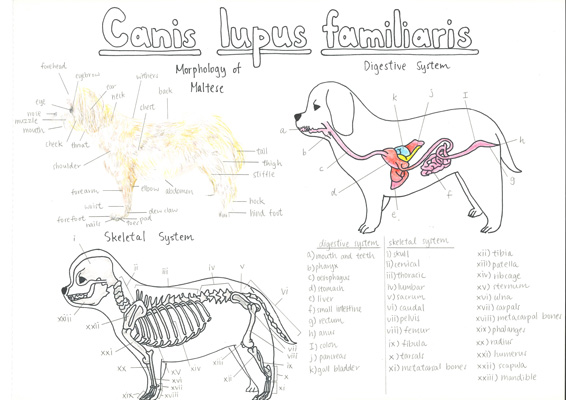 Canis lupus familiaris
Morphology of
Maltese
forehead
eyebrow
ear
neck
withers
back
chest
eye
nose
muzzle
mouth
cheek
throat
shoulder
tail
thigh
stiffle
forearm
elbow
abdomen
wrist
hock
hind foot
dew claw
forefoot
nails
toe pad
Digestive System
a
b
c
d
e
f
g
h
I
j
k
Skeletal System
i
ii
iii
iv
v
vi
vii
viii
ix
x
xi
xv
xvi
xvii
xviii
xix
xx
xxi
xxii
xxiii
digestive system
a) mouth and teeth
b) pharynx
c) oesophagus
d) stomach
e) liver
f) small intestine
g) rectum
h) anus
I) colon
j) pancreas
k) gall bladder
skeletal system
i) skull
ii) cervical
iii) thoracic
iv) lumbar
v) sacrum
vi) caudal
vii) pelvis
viii) femur
ix) fibula
x) tarsals
xi) metatarsal bones
xii) tibia
xiii) patella
xiv) ribcage
xv) sternum
xvi) ulna
xvii) carpals
xviii) metacarpal bones
xix) phalanges
xx) radius
xxi) humerus
xxii) scapula
xxiii) mandible